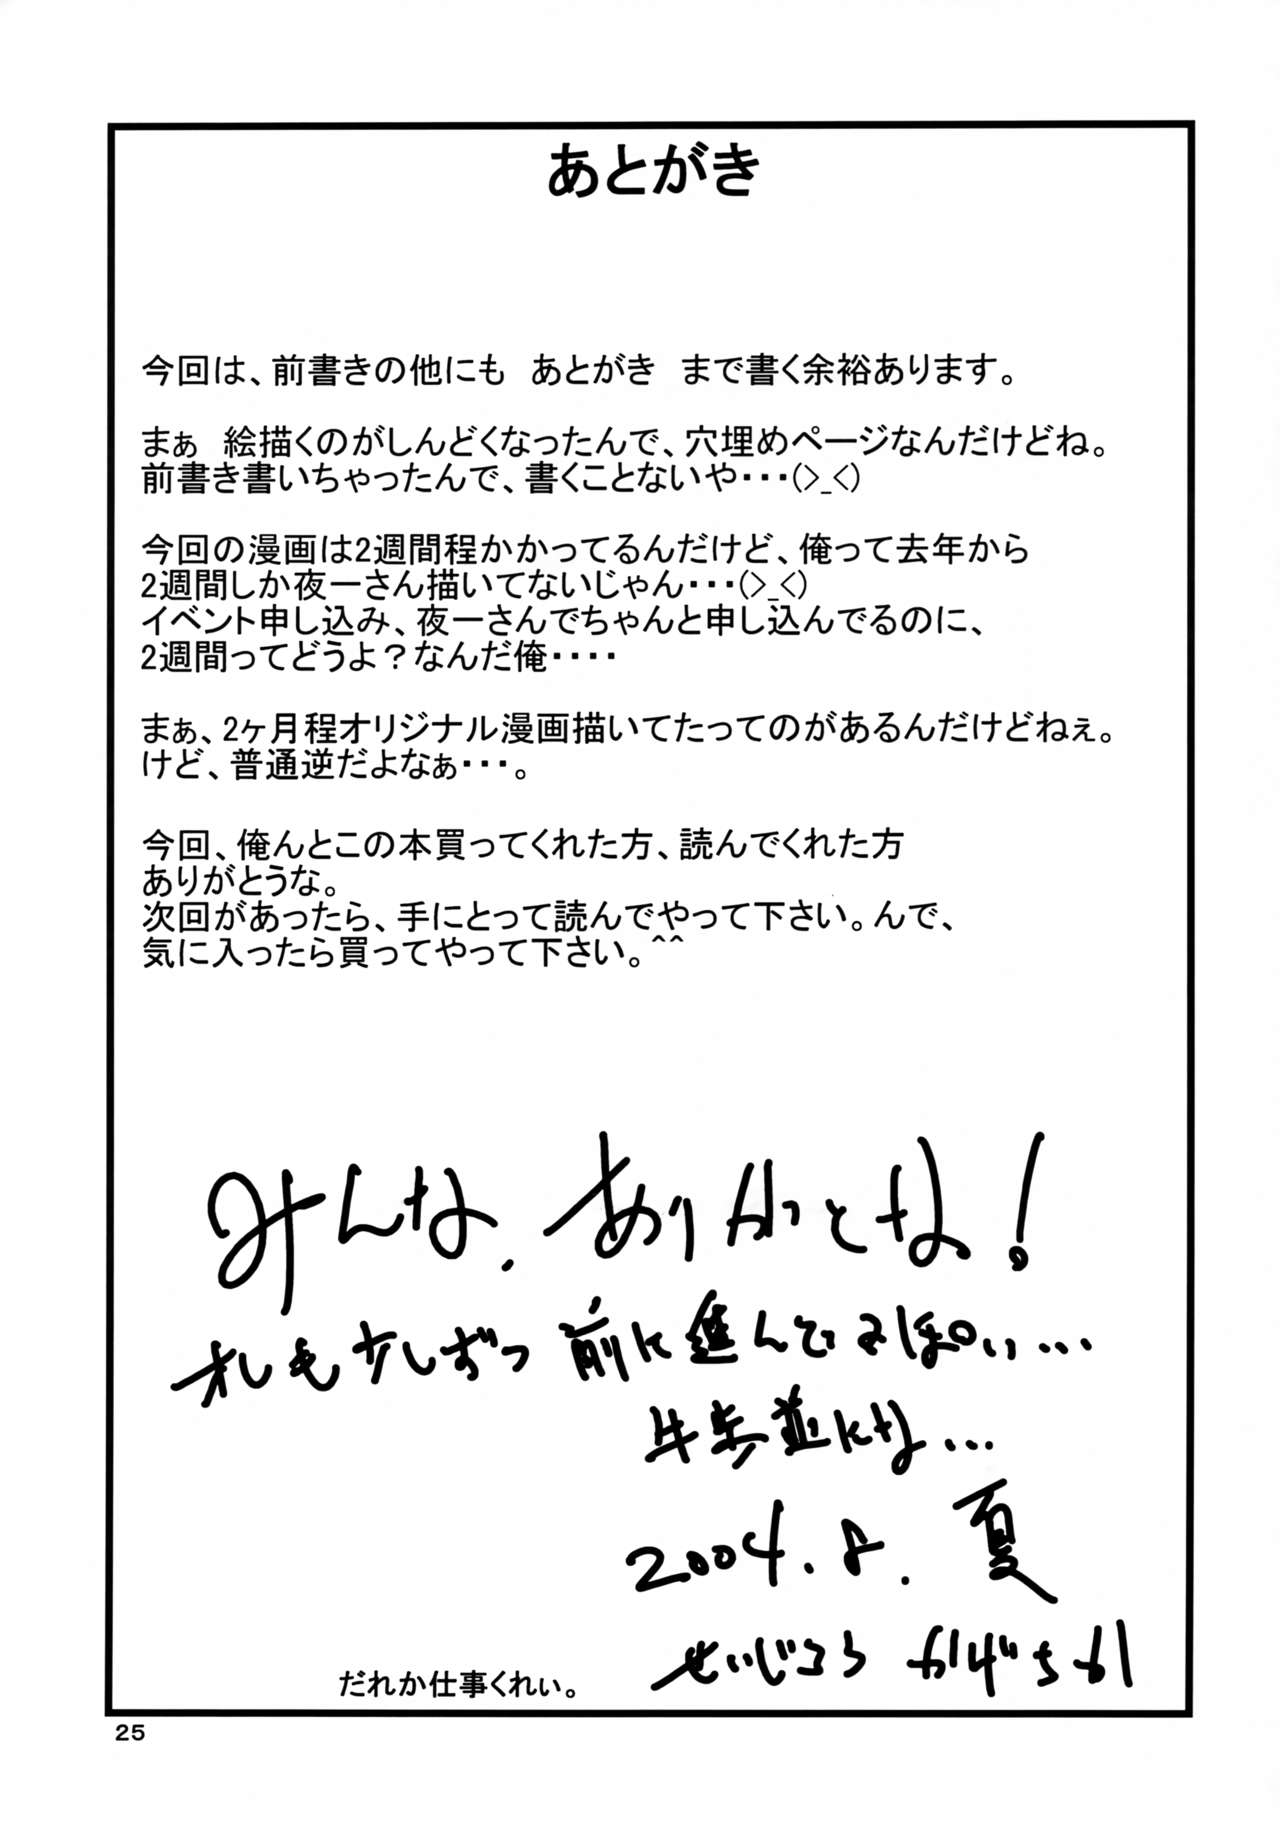 あとがき
今回は、前書きの他にも　あとがき　まで書く余裕あります。
まぁ　絵描くのがしんどくなったんで、穴埋めページなんだけどね。
前書き書いちゃったんで、書くことないや・・・(>_<)
今回の漫画は2週間程かかってるんだけど、俺って去年から
2週間しか夜一さん描いてないじゃん・・・(>_<)
イベント申し込み、夜一さんでちゃんと申し込んでるのに、
2週間ってどうよ？なんだ俺・・・・
まぁ、2ヶ月程オリジナル漫画描いてたってのがあるんだけどねぇ。
けど、普通逆だよなぁ・・・。
今回、俺んとこの本買ってくれた方、読んでくれた方
ありがとうな。
次回があったら、手にとって読んでやって下さい。んで、
気に入ったら買ってやって下さい。^^
みんな、ありがとな!
オレも少しずつ前に進んでるっぽい...
牛歩並にな...
2004.8.夏
せいじころ
だれか仕事くれぃ。
25